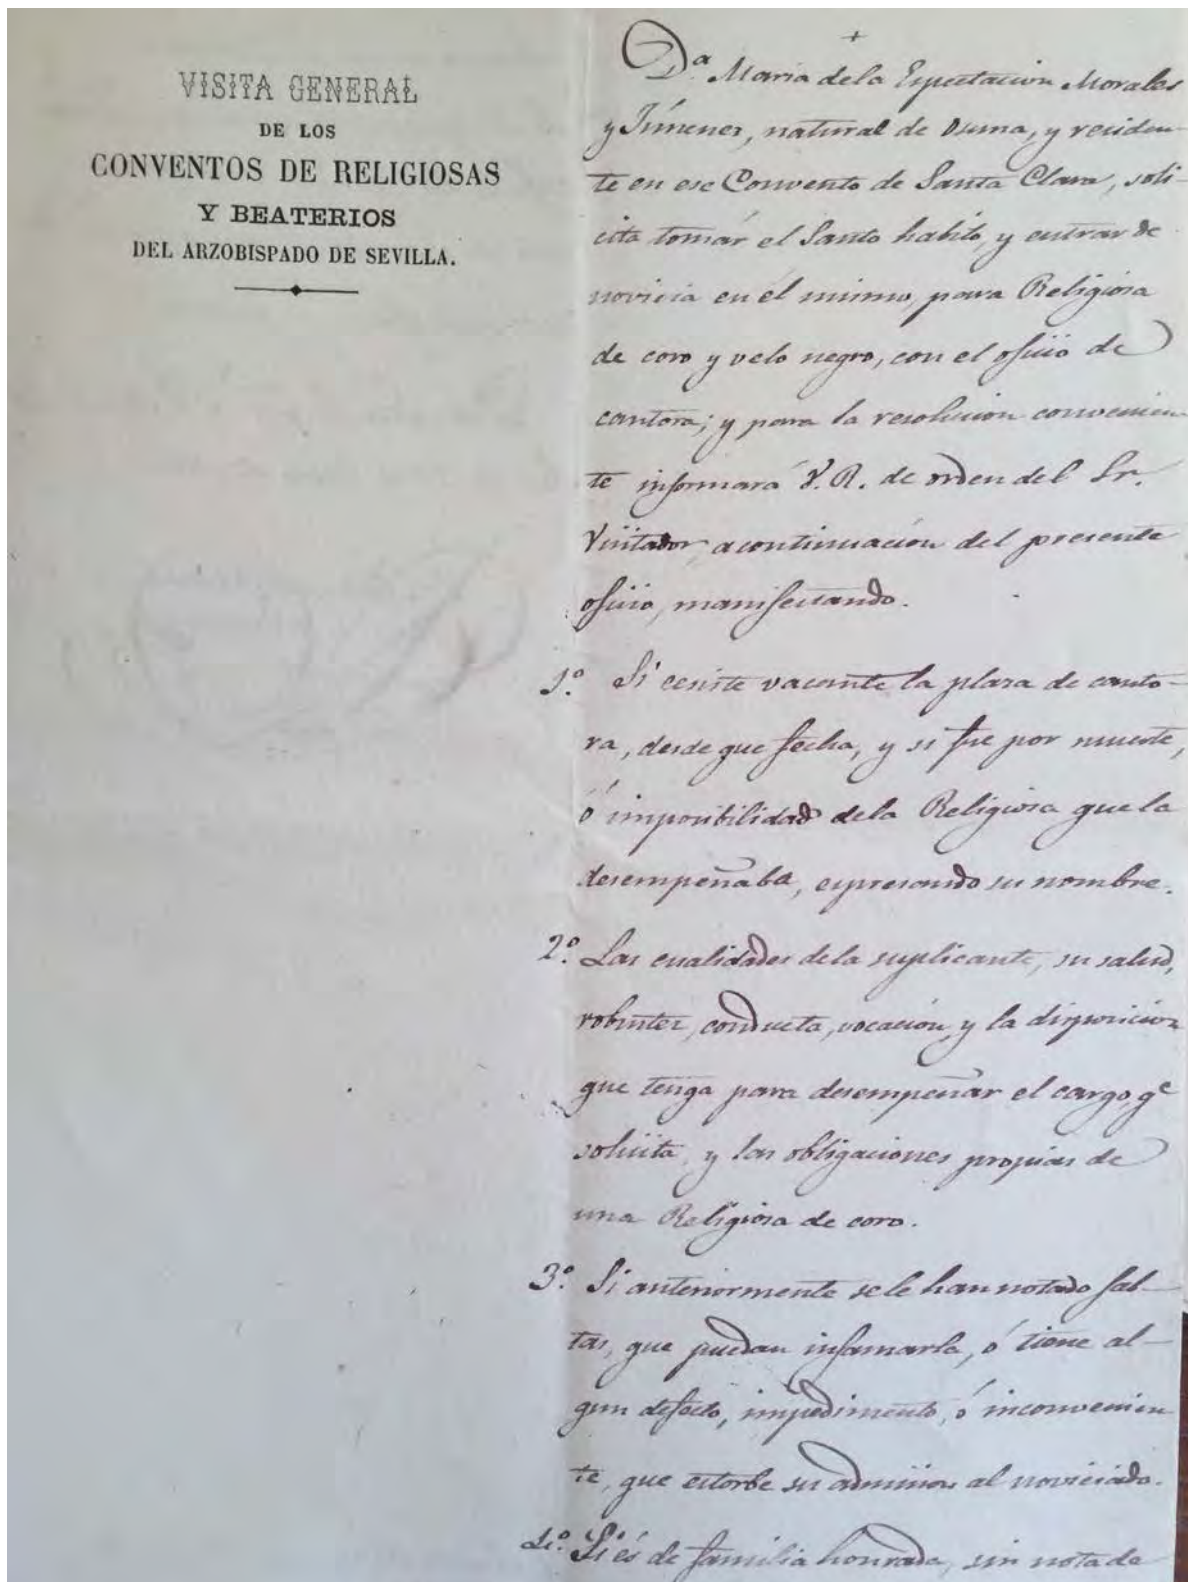 VISITA GENERAL
DE LOS
CONVENTOS DE RELIGIOSAS
Y BEATERIOS
DEL ARZOBISPADO DE SEVILLA.
+
Dª. Maria dela Espectacion Morales
y Jimenez, natural de Osuna, y residen-
te en ese Convento de Santa Clara, soli-
cita tomar el Santo habito, y entrar de
novicia en él mismo, para Religiosa
de coro y velo negro, con el oficio de
cantora; y para la resolucion convenien-
te informará V.R. de orden del Sr.
Visitador, a continuación del presente
oficio, manifestando.
1º. Si ecsiste vacante la plaza de canto-
ra, desde que fecha, y si fue por muerte,
ó imposibilidad dela Religiosa que la
desempeñaba, espresando su nombre.
2º. Las cualidades dela suplicante, su salud,
robustez, conducta, vocación, y la disposicion
que tenga para desempeñar el cargo, qe
solicita, y las obligaciones propias de
una Religiosa de coro.
3º. Si anteriormente se le han notado fal-
tas, que puedan infamarla, ó tiene al-
gun defecto, impedimento, ó inconvenien
te, que estorbe su admision al noviciado.
4º. Si és de familia honrada, sin nota de